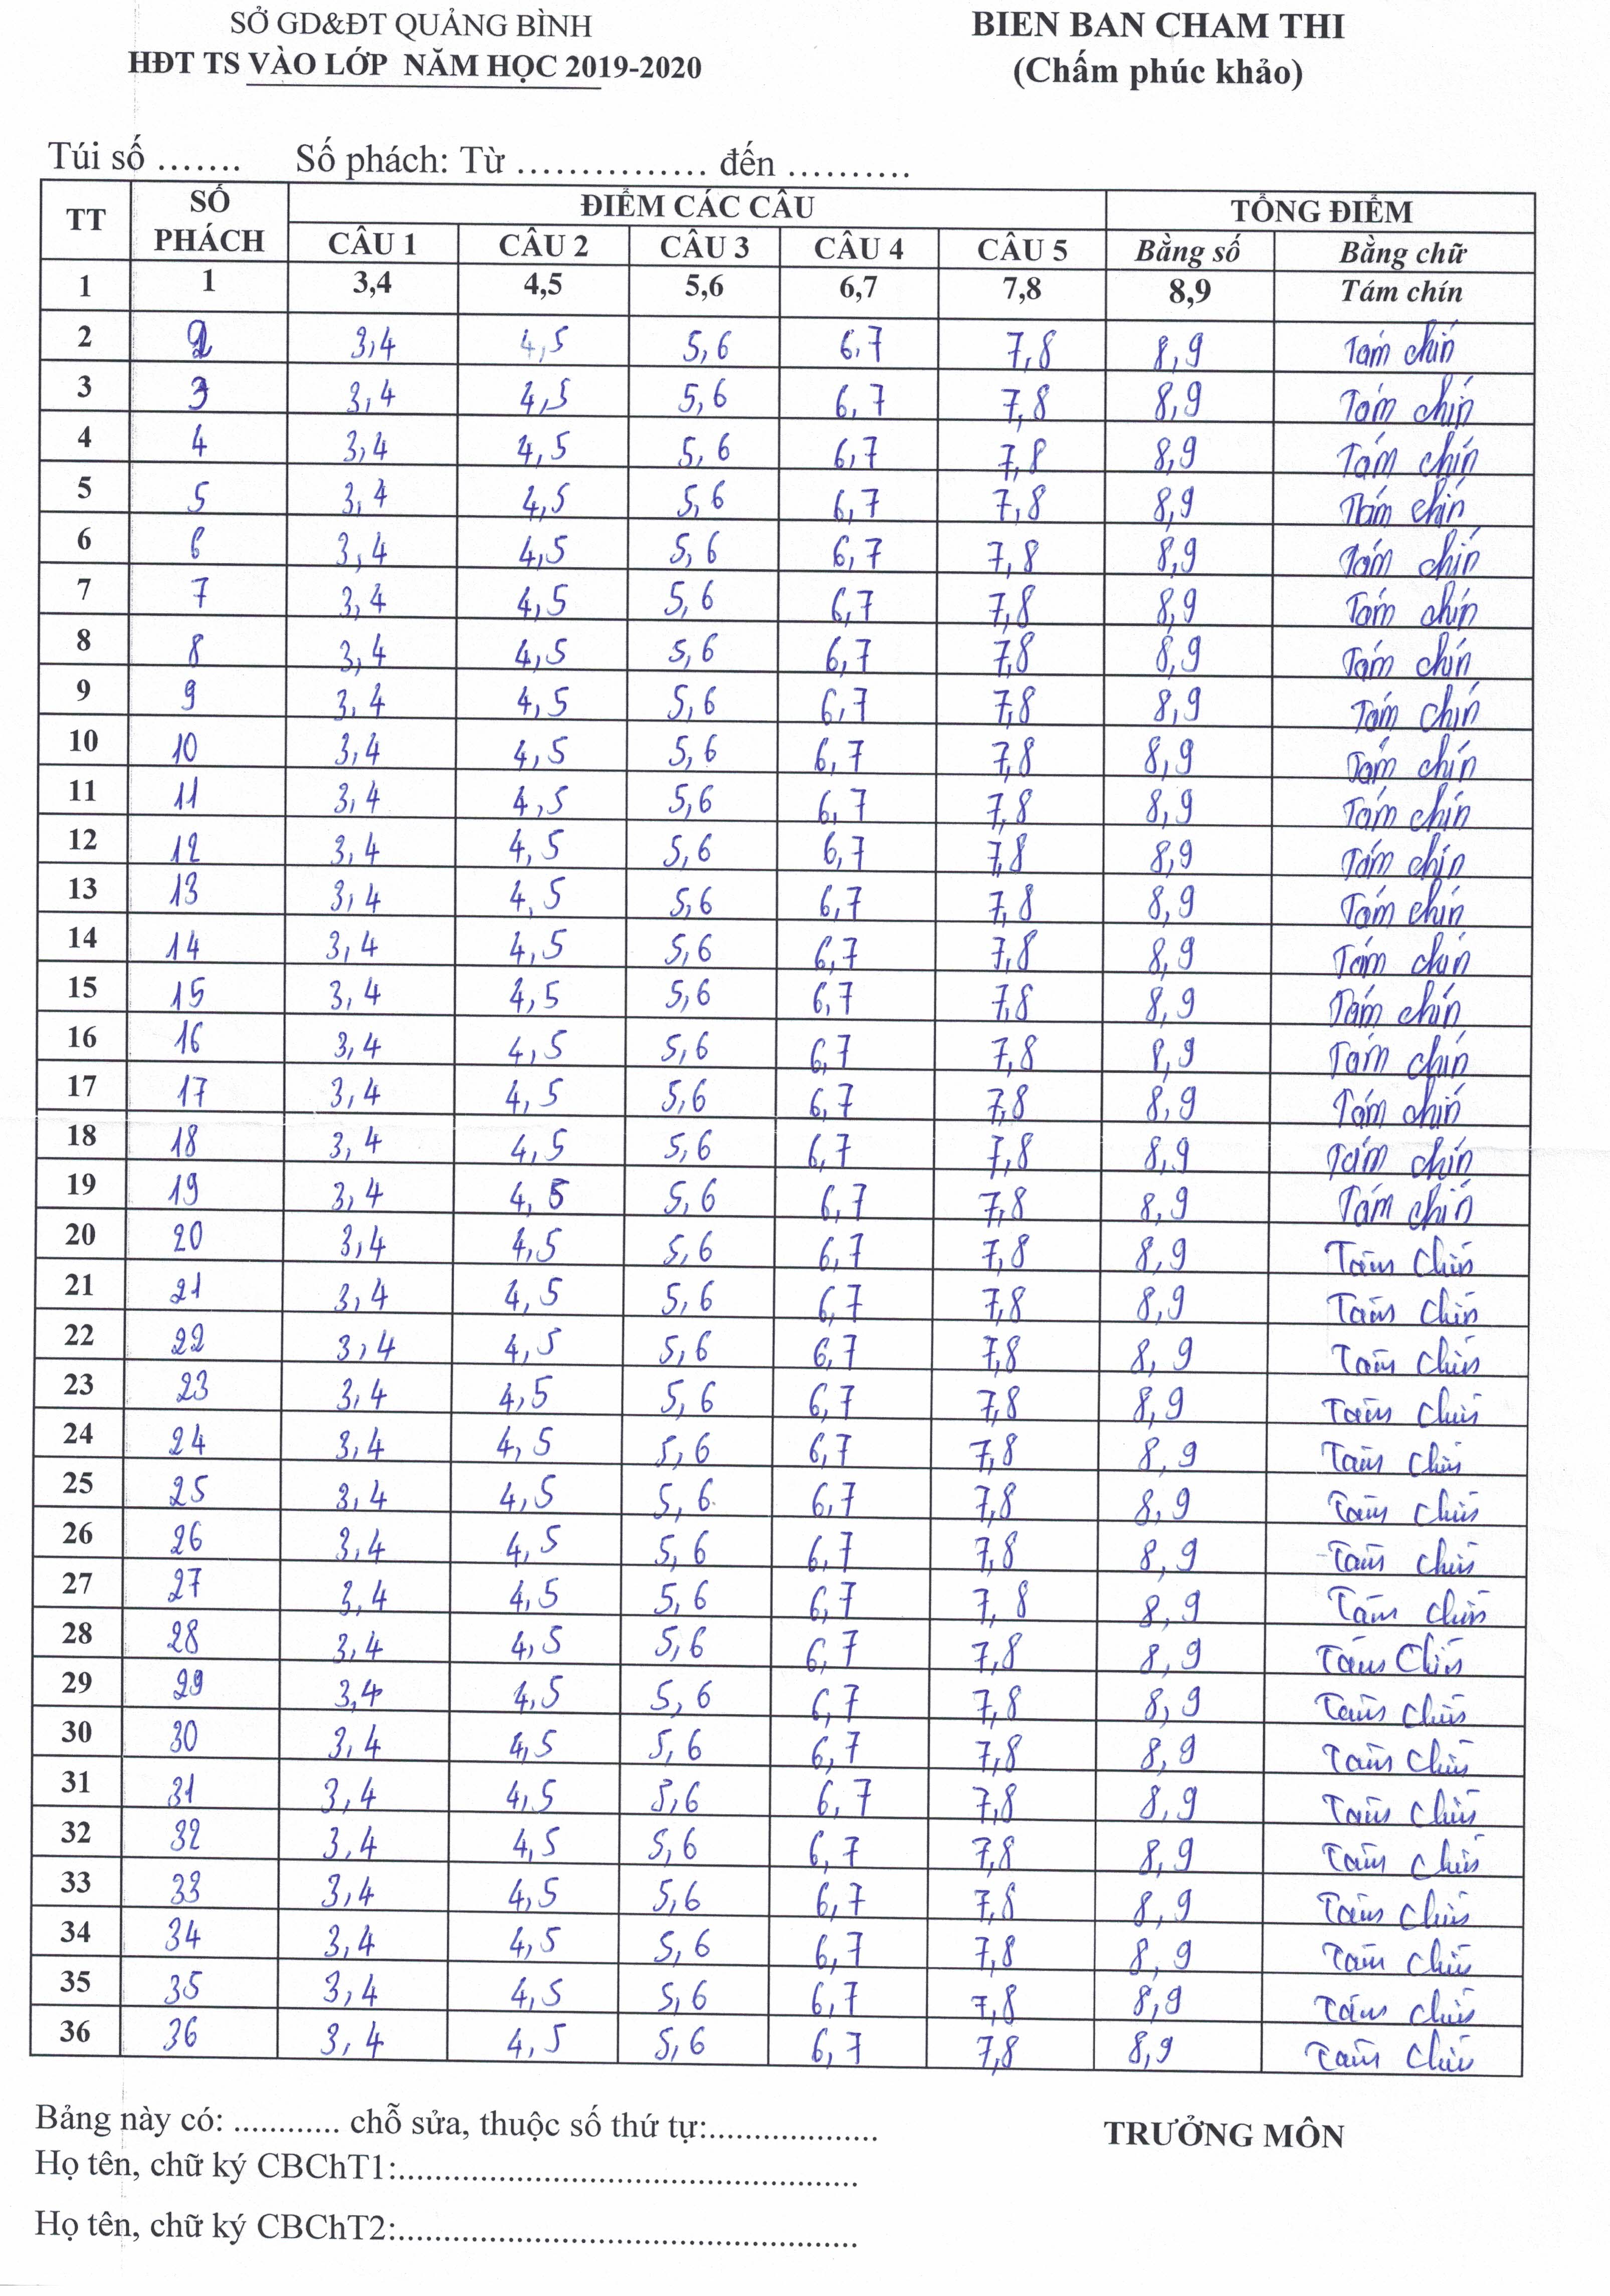 SỞ GD&ĐT QUẢNG BÌNH
HĐT TS VÀO LỚP NĂM HỌC 2019-2020
BIEN BAN CHAM THI
(Chấm phúc khảo)
Túi số ....... Số phách: Từ ............... đến ..........
TT SỐ PHÁCH ĐIỂM CÁC CÂU TỔNG ĐIỂM
CÂU 1 CÂU 2 CÂU 3 CÂU 4 CÂU 5 Bằng số Bằng chữ
1 1 3,4 4,5 5,6 6,7 7,8 8,9 Tám chín
2 2 3,4 4,5 5,6 6,7 7,8 8,9 Tám chín
3 3 3,4 4,5 5,6 6,7 7,8 8,9 Tám chín
4 4 3,4 4,5 5,6 6,7 7,8 8,9 Tám chín
5 5 3,4 4,5 5,6 6,7 7,8 8,9 Tám chín
6 6 3,4 4,5 5,6 6,7 7,8 8,9 Tám chín
7 7 3,4 4,5 5,6 6,7 7,8 8,9 Tám chín
8 8 3,4 4,5 5,6 6,7 7,8 8,9 Tám chín
9 9 3,4 4,5 5,6 6,7 7,8 8,9 Tám chín
10 10 3,4 4,5 5,6 6,7 7,8 8,9 Tám chín
11 11 3,4 4,5 5,6 6,7 7,8 8,9 Tám chín
12 12 3,4 4,5 5,6 6,7 7,8 8,9 Tám chín
13 13 3,4 4,5 5,6 6,7 7,8 8,9 Tám chín
14 14 3,4 4,5 5,6 6,7 7,8 8,9 Tám chín
15 15 3,4 4,5 5,6 6,7 7,8 8,9 Tám chín
16 16 3,4 4,5 5,6 6,7 7,8 8,9 Tám chín
17 17 3,4 4,5 5,6 6,7 7,8 8,9 Tám chín
18 18 3,4 4,5 5,6 6,7 7,8 8,9 Tám chín
19 19 3,4 4,5 5,6 6,7 7,8 8,9 Tám chín
20 20 3,4 4,5 5,6 6,7 7,8 8,9 Tám Chín
21 21 3,4 4,5 5,6 6,7 7,8 8,9 Tám Chín
22 22 3,4 4,5 5,6 6,7 7,8 8,9 Tám Chín
23 23 3,4 4,5 5,6 6,7 7,8 8,9 Tám Chín
24 24 3,4 4,5 5,6 6,7 7,8 8,9 Tám Chín
25 25 3,4 4,5 5,6 6,7 7,8 8,9 Tám Chín
26 26 3,4 4,5 5,6 6,7 7,8 8,9 Tám Chín
27 27 3,4 4,5 5,6 6,7 7,8 8,9 Tám Chín
28 28 3,4 4,5 5,6 6,7 7,8 8,9 Tám Chín
29 29 3,4 4,5 5,6 6,7 7,8 8,9 Tám Chín
30 30 3,4 4,5 5,6 6,7 7,8 8,9 Tám Chín
31 31 3,4 4,5 5,6 6,7 7,8 8,9 Tám Chín
32 32 3,4 4,5 5,6 6,7 7,8 8,9 Tám Chín
33 33 3,4 4,5 5,6 6,7 7,8 8,9 Tám Chín
34 34 3,4 4,5 5,6 6,7 7,8 8,9 Tám Chín
35 35 3,4 4,5 5,6 6,7 7,8 8,9 Tám Chín
36 36 3,4 4,5 5,6 6,7 7,8 8,9 Tám Chín
Bảng này có: ............ chỗ sửa, thuộc số thứ tự:...................
TRƯỞNG MÔN
Họ tên, chữ ký CBChT1:...................................................
Họ tên, chữ ký CBChT2:...................................................